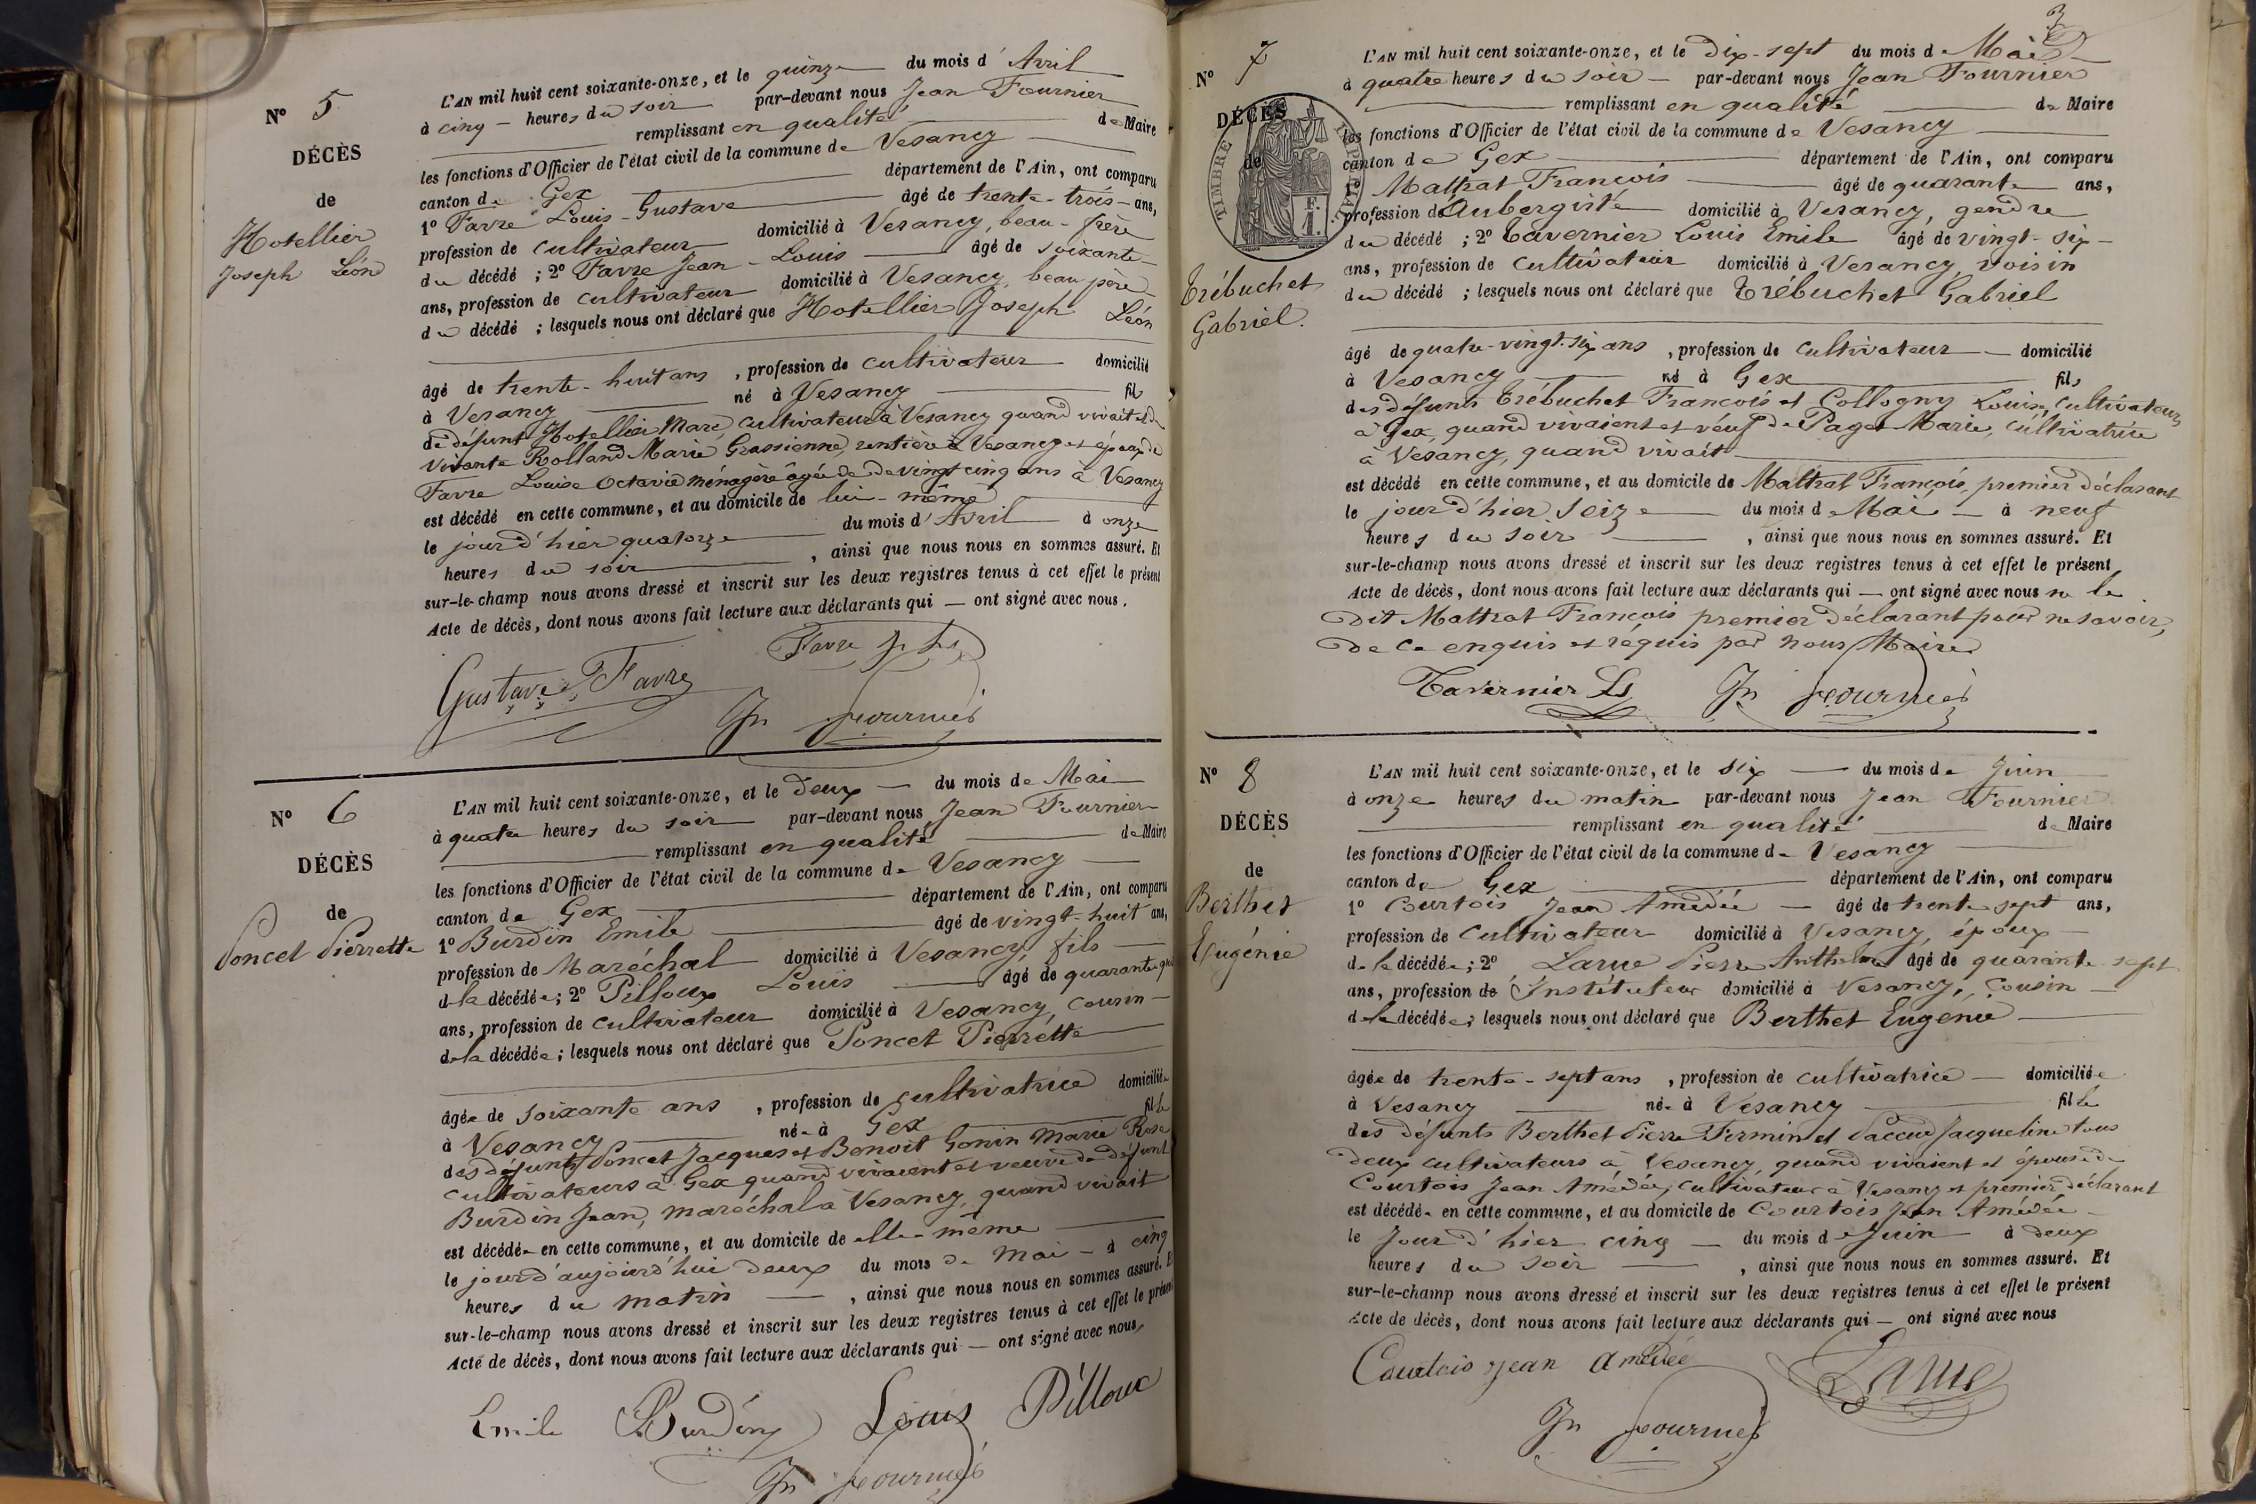 N° 5
DÉCÈS
de
Hotellier
Joseph Léon
L'AN mil huit cent soixante-onze, et le quinze du mois d'Avril
à cinq heures du soir par-devant nous Jean Fournier
remplissant en qualité de Maire
les fonctions d'Officier de l'état civil de la commune de Vesancy
canton de Gex département de l'Ain, ont comparu
1° Favre Louis-Gustave âgé de trente-trois ans,
profession de cultivateur domicilié à Vesancy, beau-frère
du décédé ; 2° Favre Jean-Louis âgé de soixante
ans, profession de cultivateur domicilié à Vesancy, beau père
du décédé ; lesquels nous ont déclaré que Hotellier Joseph Léon
âgé de trente-huit ans, profession de cultivateur domicilié
à Vesancy né à Vesancy fils
de défunt Hotellier Marc cultivateur à Vesancy quand vivait et de
vivante Rolland Marie Grassienne, rentière à Vesancy et époux de
Favre Louise Octavie ménagère âgée de vingt cinq ans à Vesancy
est décédé en cette commune, et au domicile de lui-même
le jour d'hier quatorze du mois d'Avril à onze
heures du soir, ainsi que nous nous en sommes assuré. Et
sur-le-champ nous avons dressé et inscrit sur les deux registres tenus à cet effet le présent
Acte de décès, dont nous avons fait lecture aux déclarants qui — ont signé avec nous.
Gustave Favre Favre
Jn Fournier
N° 6
DÉCÈS
de
Poncet Pierrette
L'AN mil huit cent soixante-onze, et le deux du mois de Mai
à quatre heures du soir par-devant nous Jean Fournier
remplissant en qualité de Maire
les fonctions d'Officier de l'état civil de la commune de Vesancy
canton de Gex département de l'Ain, ont comparu
1° Burdin Emile âgé de vingt-huit ans,
profession de Maréchal domicilié à Vesancy, fils
de la décédée ; 2° Pilloux Louis âgé de quarante
ans, profession de cultivateur domicilié à Vesancy, cousin
de la décédée ; lesquels nous ont déclaré que Poncet Pierrette
âgée de soixante ans, profession de cultivatrice domiciliée
à Vesancy née à Gex fille
des défunts Poncet Jacques et Benoit Gonin Marie Rose
cultivateurs à Gex quand vivaient et veuve de défunt
Burdin Jean, maréchal à Vesancy, quand vivait
est décédée en cette commune, et au domicile de elle-même
le jour d'aujourd'hui deux du mois de Mai à cinq
heures du matin, ainsi que nous nous en sommes assuré. Et
sur-le-champ nous avons dressé et inscrit sur les deux registres tenus à cet effet le présent
Acte de décès, dont nous avons fait lecture aux déclarants qui — ont signé avec nous
Emile Burdin Louis Pilloux
Jn Fournier
3
N° 7
DÉCÈS
de
TIMBRE IMPÉRIAL
Trébuchet
Gabriel.
L'AN mil huit cent soixante-onze, et le dix-sept du mois de Mai
à quatre heures du soir par-devant nous Jean Fournier
remplissant en qualité de Maire
les fonctions d'Officier de l'état civil de la commune de Vesancy
canton de Gex département de l'Ain, ont comparu
1° Mattrat François âgé de quarante ans,
profession d'Aubergiste domicilié à Vesancy, gendre
du décédé ; 2° Tavernier Louis Emile âgé de vingt-six
ans, profession de cultivateur domicilié à Vesancy, voisin
du décédé ; lesquels nous ont déclaré que Trébuchet Gabriel
âgé de quatre-vingt-six ans, profession de cultivateur domicilié
à Vesancy né à Gex fils
des défunts Trébuchet François et Collogny Louise, cultivateurs
à Gex, quand vivaient et veuf de Paget Marie, cultivatrice
à Vesancy, quand vivait
est décédé en cette commune, et au domicile de Mattrat François, premier déclarant
le jour d'hier seize du mois de Mai à neuf
heures du soir, ainsi que nous nous en sommes assuré. Et
sur-le-champ nous avons dressé et inscrit sur les deux registres tenus à cet effet le présent
Acte de décès, dont nous avons fait lecture aux déclarants qui — ont signé avec nous le
dit Mattrat François premier déclarant pour ne savoir,
de ce enquis et requis par nous Maire
Tavernier Ls Jn Fournier
N° 8
DÉCÈS
de
Berthet
Eugénie
L'AN mil huit cent soixante-onze, et le six du mois de Juin
à onze heures du matin par-devant nous Jean Fournier
remplissant en qualité de Maire
les fonctions d'Officier de l'état civil de la commune de Vesancy
canton de Gex département de l'Ain, ont comparu
1° Courtois Jean Amédée âgé de trente sept ans,
profession de cultivateur domicilié à Vesancy, époux
de la décédée ; 2° Larue Pierre Anthelme âgé de quarante sept
ans, profession de Instituteur domicilié à Vesancy, cousin
de la décédée ; lesquels nous ont déclaré que Berthet Eugénie
âgée de trente-sept ans, profession de cultivatrice domiciliée
à Vesancy née à Vesancy fille
des défunts Berthet Pierre Firmin et Paccoud Jacqueline tous
deux cultivateurs à Vesancy, quand vivaient et épouse de
Courtois Jean Amédée, cultivateur à Vesancy et premier déclarant
est décédée en cette commune, et au domicile de Courtois Jean Amédée
le jour d'hier cinq du mois de Juin à deux
heures du soir, ainsi que nous nous en sommes assuré. Et
sur-le-champ nous avons dressé et inscrit sur les deux registres tenus à cet effet le présent
Acte de décès, dont nous avons fait lecture aux déclarants qui — ont signé avec nous
Courtois Jean Amédée Larue
Jn Fournier